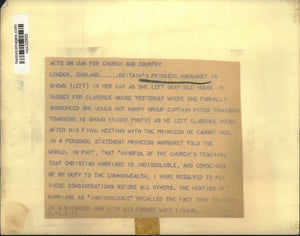 ACTS ON OWN FOR CHURCH AND COUNTRY
LONDON, ENGLAND.....BRITAIN'S PRINCESS MARGARET IS
SHOWN (LEFT) IN HER CAR AS SHE LEFT UCKFIELD HOUSE IN
SUSSEX FOR CLARENCE HOUSE YESTERDAY WHERE SHE FORMALLY
ANNOUNCED SHE WOULD NOT MARRY GROUP CAPTAIN PETER TOWNSEND
TOWNSEND IS SHOWN (RIGHT PHOTO) AS HE LEFT CLARENCE HOUSE
AFTER HIS FINAL MEETING WITH THE PRINCESS HE CANNOT WED.
IN A PERSONAL STATEMENT PRINCESS MARGARET TOLD THE
WORLD, IN PART, THAT "MINDFUL OF THE CHURCH'S TEACHING
THAT CHRISTIAN MARRIAGE IS INDISSOLUBLE, AND CONSCIOUS
OF MY DUTY TO THE COMMONWEALTH, I HAVE RESOLVED TO PUT
THESE CONSIDERATIONS BEFORE ALL OTHERS. THE MENTION OF
MARRIAGE AS "INDISSOLUBLE" RECALLED THE FACT THAT
IS A DIVORCED MAN WITH HIS FORMER WIFE LIVING.